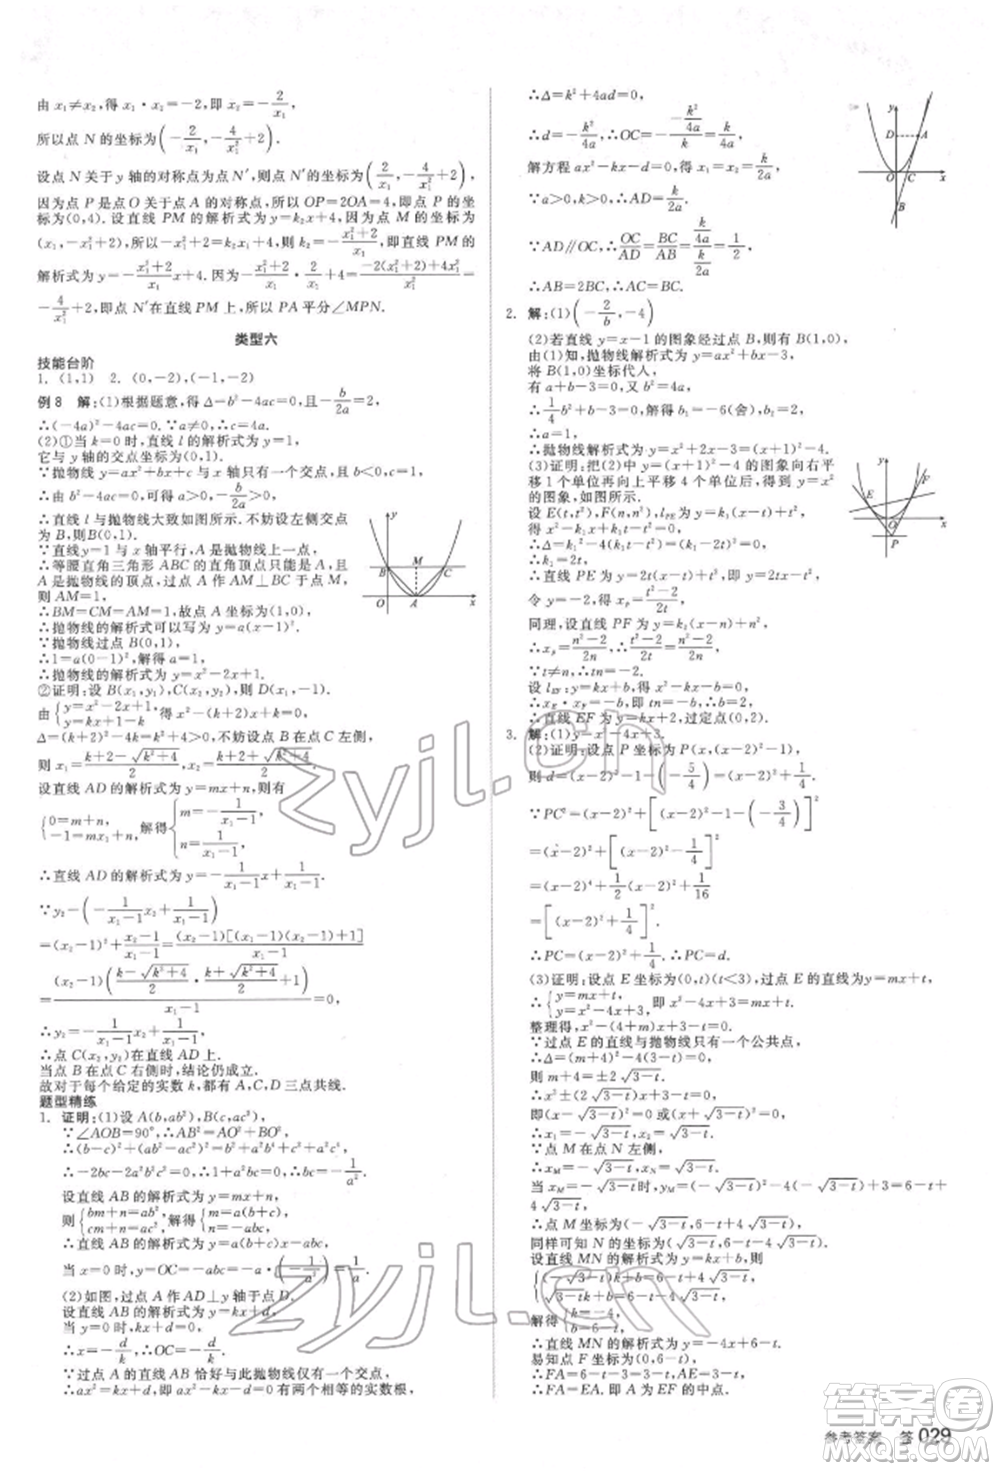 由 x₁≠x₂,得 x₁·x₂=−2,即 x₂=−2/x₁.
所以点 N 的坐标为(−2/x₁,−4/x₁²+2).
设点 N 关于 y 轴的对称点为点 N′,则点 N′的坐标为(2/x₁,−4/x₁²+2).
因为点 P 是点 O 关于点 A 的对称点,所以 OP=2OA=4,即点 P 的坐标为
(0,4).设直线 PM 的解析式为 y=k₂x+4,因为点 M 的坐标为
(x₁,−x₁²+2),所以−x₁²+2=k₂x₁+4,则 k₂=−(x₁²+2)/x₁.即直线 PM 的
解析式为 y=−(x₁²+2)/x₁ x+4.因为−(x₁²+2)/x₁·2/x₁+4=(−2(x₁²+2)+4x₁²)/x₁²=
−4/x₁²+2,即点 N′在直线 PM 上,所以 PA 平分∠MPN.
类型六
技能台阶
1. (1,1) 2. (0,−2),(−1,−2)
例 8 解:(1)根据题意,得 Δ=b²−4ac=0,−b/2a=2,
∴(−4a)²−4ac=0.∵a≠0,∴c=4a.
(2)①当 k=0 时,直线 l 的解析式为 y=1,
它与 y 轴的交点坐标为(0,1).
∵抛物线 y=ax²+bx+c 与 x 轴只有一个交点,且 b<0,
∴由 b²−4ac=0,可得 c>0,a>0,−b/2a>0.
∴直线 l 与抛物线大致如图所示.不妨设左侧交点
为 B,则 B(0,1).
∵直线 l 与 x 轴平行,A 是抛物线上一点,
∴等腰直角三角形 ABC 的直角顶点只能是 A,且
A 是抛物线的顶点,过点 A 作 AM⊥BC 于点 M,
则 AM=1,
∴BM=CM=AM=1,故点 A 坐标为(1,0),
∴抛物线的解析式可以写为 y=a(x−1)².
∵抛物线过点 B(0,1),
∴1=a(0−1)²,解得 a=1.
∴抛物线的解析式为 y=x²−2x+1.
②证明:设 B(x₁,y₁),C(x₂,y₂),则 D(x₁,1).
由{y=x²−2x+1,y=kx+1−k得 x²−(k+2)x+k=0,
Δ=(k+2)²−4k=k²+4>0,不妨设点 B 在点 C 左侧,
则 x₁=(k+2−√(k²+4))/2,x₂=(k+2+√(k²+4))/2.
设直线 AD 的解析式为 y=mx+n,则有
{0=m+n,−1=mx₁+n,解得{m=−1/(x₁−1),n=1/(x₁−1),
∴直线 AD 的解析式为 y=−1/(x₁−1)x+1/(x₁−1).
∵y₂−(−1/(x₁−1)x₂+1/(x₁−1))
=(x₂−1)²+(x₂−1)/(x₁−1)=(x₂−1)[(x₁−1)(x₂−1)+1]/(x₁−1)
=(x₂−1)((k−√(k²+4))/2·(k+√(k²+4))/2+1)/(x₁−1)=0,
∴y₂=−1/(x₁−1)x₂+1/(x₁−1),
∴点 C(x₂,y₂)在直线 AD 上.
当点 B 在点 C 右侧时,结论仍成立.
故对于每个给定的实数 k,都有 A,C,D 三点共线.
题型精练
1. 证明:(1)设 A(b,ab²),B(c,ac²),
∵∠AOB=90°,∴AB²=AO²+BO²,
∴(b−c)²+(ab²−ac²)²=b²+(ab²)²+c²+(ac²)²,
∴−2bc−2a²b²c²=0,∴1+a²bc=0,∴bc=−1/a².
设直线 AB 的解析式为 y=mx+n,
则{bm+n=ab²,cm+n=ac²,解得{m=a(b+c),n=−abc,
∴直线 AB 的解析式为 y=a(b+c)x−abc,
当 x=0 时,y=OC=−abc=−a·(−1/a²)=1/a.
(2)如图,过点 A 作 AD⊥y 轴于点 D.
设直线 AB 的解析式为 y=kx+d,
当 y=0 时,0=kx+d,
∴x=−d/k,∴OC=−d/k.
∵过点 A 的直线 AB 恰好与此抛物线仅有一个交点,
∴ax²=kx+d,即 ax²−kx−d=0 有两个相等的实数根,
∴Δ=k²+4ad=0,
∴d=−k²/4a,∴OC=−(−k²/4a)/k=k/4a.
解方程 ax²−kx−d=0,得 x₁=x₂=k/2a.
∵a>0,k>0,∴AD=k/2a.
∵AD∥OC,∴OC/AD=BC/BA=(k/4a)/(k/2a)=1/2,
∴AB=2BC.
2. 解:(1)(−2/b,−4)
(2)若直线 y=x−1 的图象经过点 B,则 B(0,−1).
由(1)知,抛物线解析式为 y=ax²+bx−3(a>0),
将 B(1,0)坐标代入,
有 a+b−3=0,
∴1/4b²+b−3=0,解得 b₁=−6(舍),b₂=2,
∴a=1,
∴抛物线解析式为 y=x²+2x−3=(x+1)²−4.
(3)证明:把(2)中 y=(x+1)²−4 的图象向右平
移 1 个单位再向上平移 4 个单位后,得到 y=x²
的图象,如图所示.
设 E(t,t²),F(n,n²),l_PE为 y=k₁(x−t)+t²,
得 x²−k₁x+k₁t−t²=0,
∴Δ=k₁²−4(k₁t−t²)=(k₁−2t)²=0,
∴k₁=2t,
∴直线 PE 为 y=2t(x−t)+t²,
令 y=−2,得 xₚ=(t²−2)/2t.
同理,设直线 PF 为 y=k₂(x−n)+n²,
∴xₚ=(n²−2)/2n,∴(t²−2)/2t=(n²−2)/2n,
∵t≠n,∴tn=−2.
设 l_EF:y=kx+b,得 x²−kx−b=0,
∴x_E·x_F=−b=tn,即 tn=−b=−2,∴b=2,
∴直线 EF 为 y=kx+2,过定点(0,2).
3. 解:(1)y=x²−4x+3.
(2)证明:设点 P 坐标为 P(x,(x−2)²−1),
则 d=(x−2)²−1−(−5/4)=(x−2)²+1/4,
∵PC²=(x−2)²+[(x−2)²−1−(−3/4)]²
=(x−2)²+[(x−2)²−1/4]²
=(x−2)⁴+1/2(x−2)²+1/16
=[(x−2)²+1/4]²,
∴PC²=d²,∴PC=d.
(3)证明:设点 E 坐标为(0,t)(t<3),过点 E 的直线为 y=mx+t,
∴{y=mx+t,y=x²−4x+3,即 x²−4x+3=mx+t,
整理得,x²−(4+m)x+3−t=0,
∵过点 E 的直线与抛物线只有一个公共点,
∴Δ=(m+4)²−4(3−t)=0,
∴m+4=±2√(3−t),
∴x²±2√(3−t)x+3−t=0,
即(x−√(3−t))²=0 或(x+√(3−t))²=0,
∴x₁=−√(3−t),x₂=√(3−t).
∵点 M 在点 N 左侧,
∴x_M=−√(3−t),x_N=√(3−t).
∴点 M 坐标为(−√(3−t),6−t+4√(3−t)),
同样可知 N 的坐标为(√(3−t),6−t−4√(3−t)),
设直线 MN 的解析式为 y=kx+b,则
解得{k=−4,b=6−t,
∴直线 MN 的解析式为 y=−4x+6−t,
易知点 F 坐标为(0,6−t),
∴FA=6−t−3=3−t,AE=3−t,
∴FA=EA,即 A 为 EF 的中点.
y
B
M
C
O
A
x
y
D
A
O
C
x
B
y
E
F
O
x
P
zyjl.cn
zyjl.cn
答案圈
MXQE.COM
参考答案 答 029